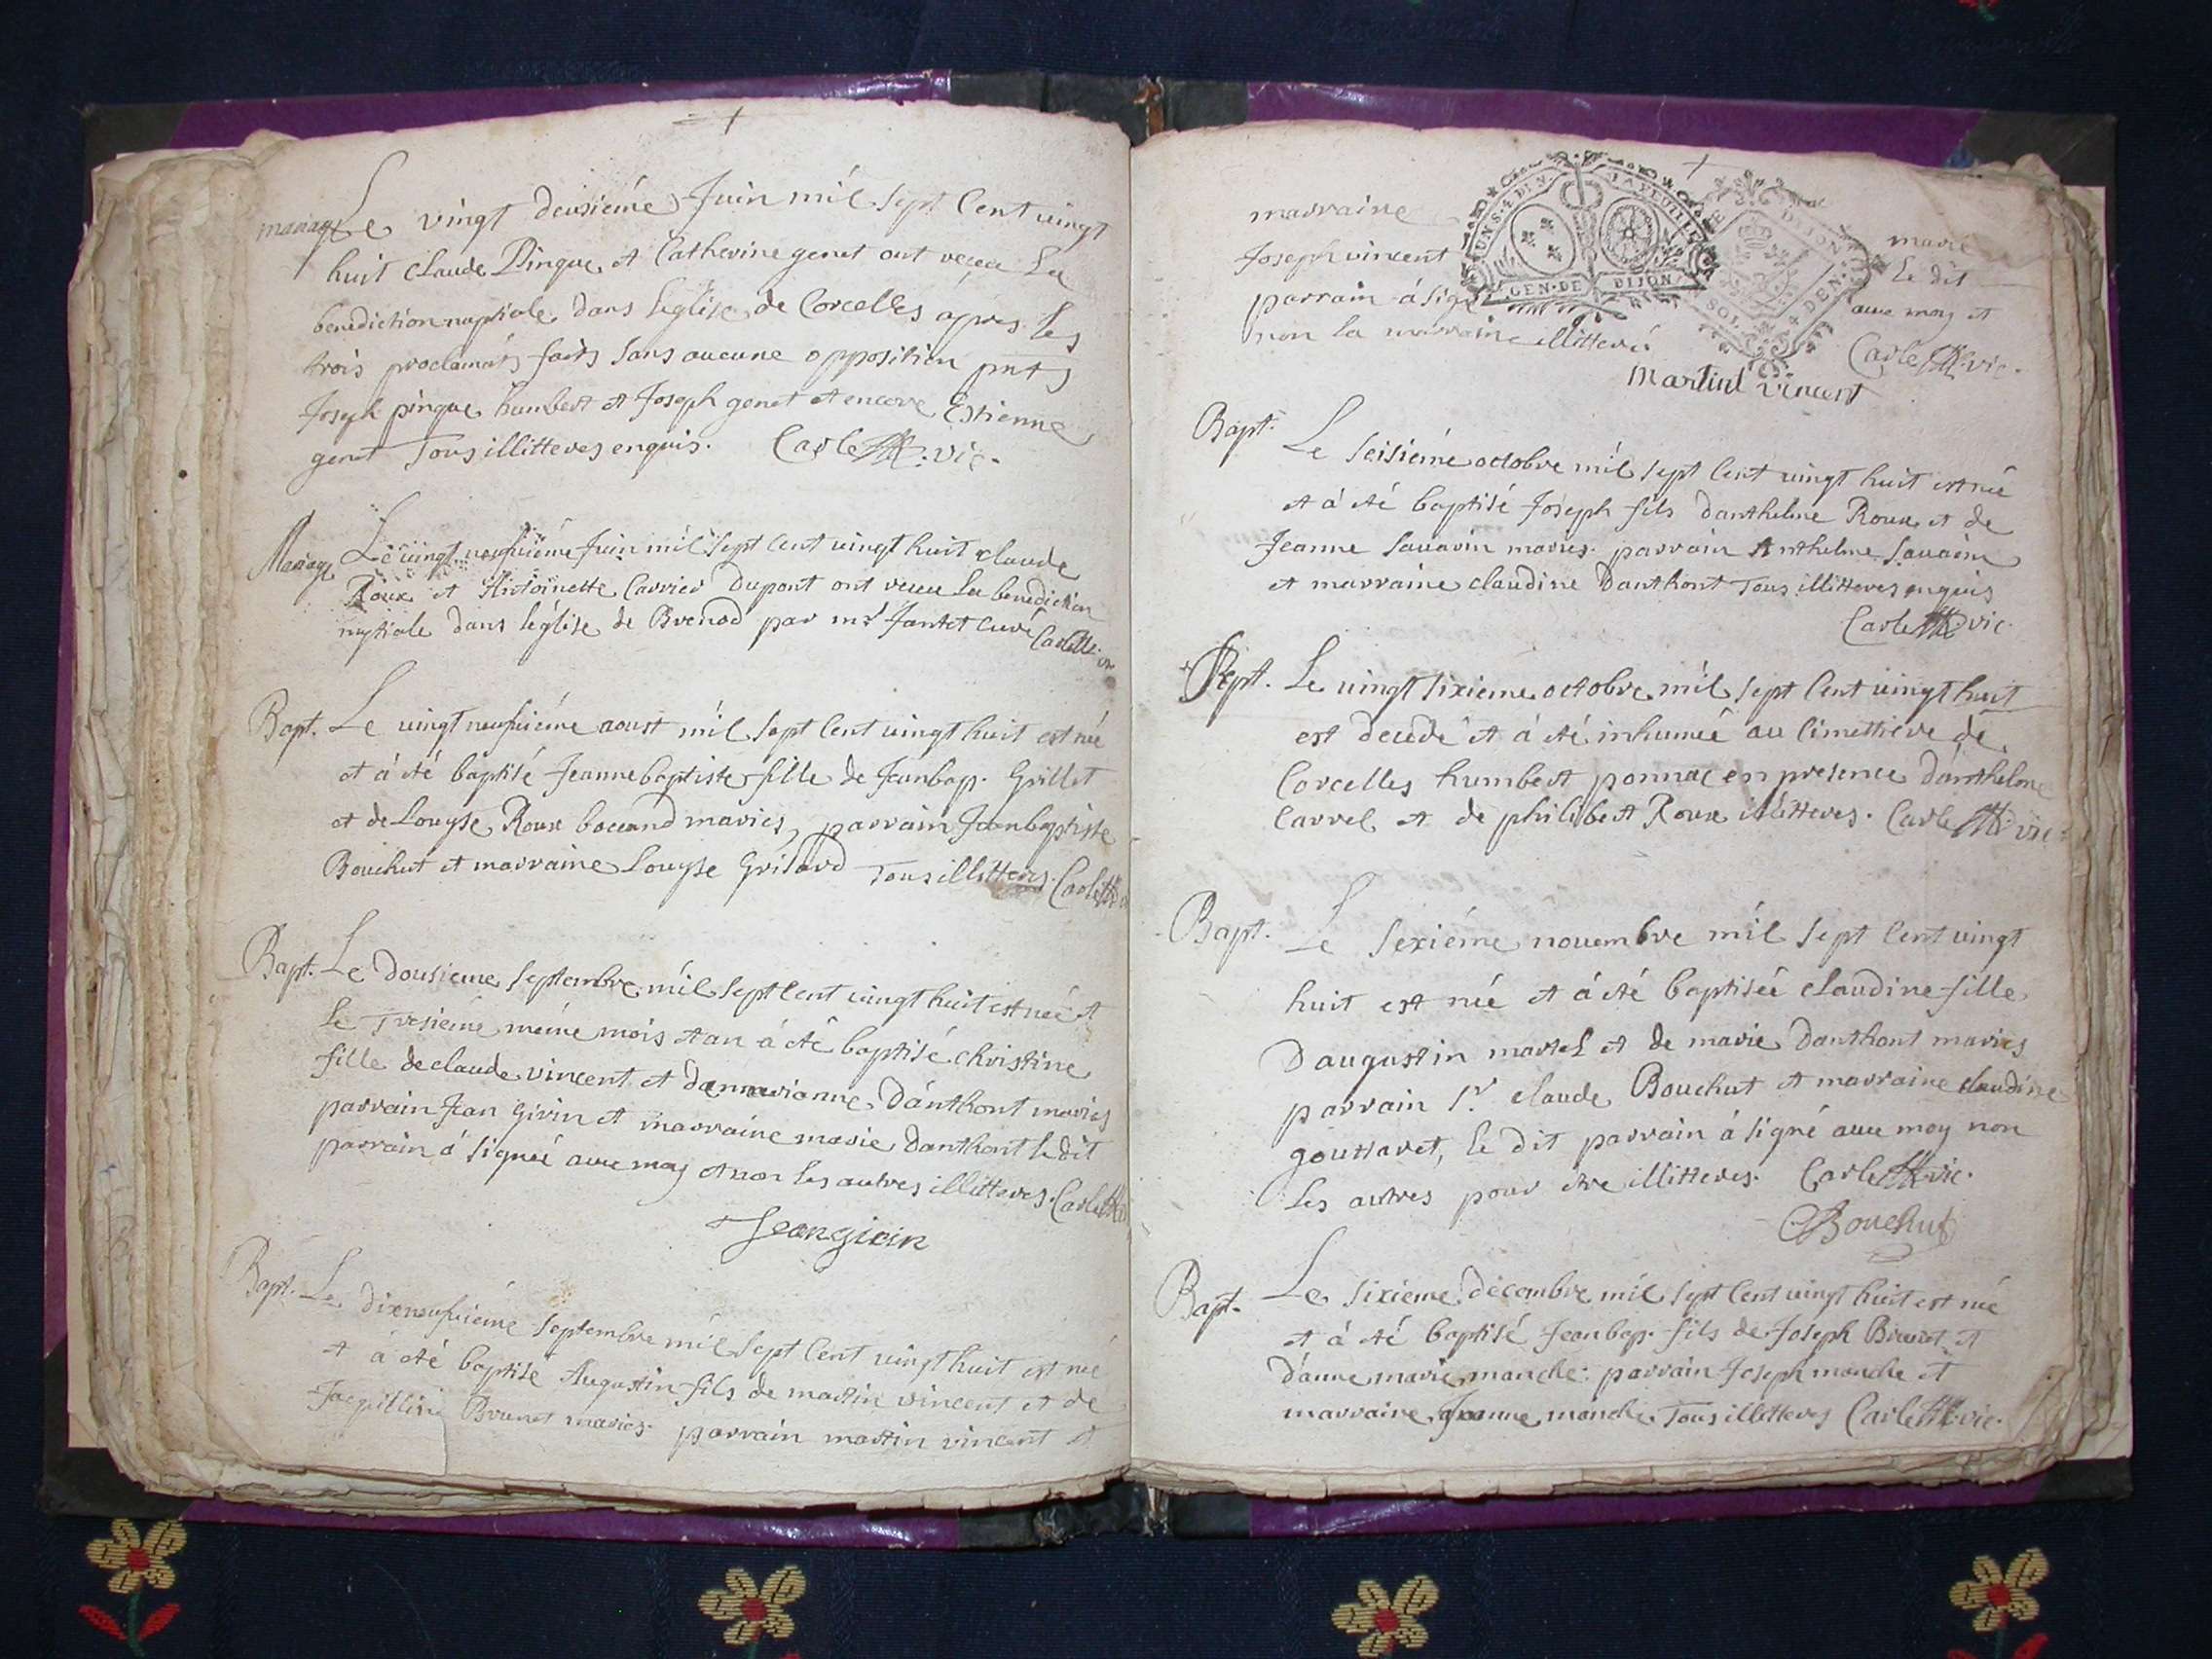 mariage Le vingt deusiéme Juin mil sept Cent vingt
huit Claude Pingue et Catherine genet ont receu La
benediction nuptiale dans leglise de Corcelles ápres les
trois proclamats faits sans aucune opposition pnts
Joseph pingue humbert et Joseph genet et encore Estienne
genet Tous illitteres enquis. Carle vic.
Mariage Le vingt neufuiéme Juin mil sept Cent vingt huit claude
Roux et Antoinette Carrier Dupont ont receu La benediction
nuptiale dans léglise de Brenod par mr Jantet Curé Carle
Bapt. Le vingt neufuiéme aoust mil sept Cent vingt huit est née
et á été baptisé Jeanne baptiste fille de Jeanbap. Grillet
et de Louyse Roux boccand mariés, parrain Jeanbaptiste
Bouchut et marraine Louyse Grilard Tous illitteres. Carle
Bapt. Le Dousieme septembre mil sept Cent vingt huit est née et
le Tresiéme méme mois et an á été baptisé christine
fille de claude vincent et dannemarianne dánthont mariés
parrain Jean Givin et marraine marie danthont le dit
parrain á signé avec moy et non les autres illitteres. Carle
Jean givin
Bapt. Le dixneufuiéme septembre mil sept Cent vingt huit est né
et á été baptisé Augustin fils de martin vincent et de
Jacquilline Brunet mariés. parrain martin vincent et
marraine marie
Joseph vincent Le dit
parrain á signé avec moy et
non la marraine illitteré Carle vic.
GEN·DE DIJON
martint vincent
Bapt. Le seisiéme octobre mil sept Cent vingt huit est né
et á été baptisé Joseph fils danthelme Roux et de
Jeanne Sauarin mariés. parrain Anthelme Sauarin
et marraine claudine Danthont Tous illitteres enquis
Carle vic.
Sept. Le vingt sixieme octobre mil sept Cent vingt huit
est decedé et á été inhumé au Cimettiere de
Corcelles humbert ponnac en presence dánthelme
Carrel et de philibert Roux illitteres. Carle vic.
Bapt. Le sexiéme nouembre mil sept Cent vingt
huit est née et á été baptisée claudine fille
Daugustin martel et de marie Danthont mariés
parrain Sr. claude Bouchut et marraine claudine
gouttaret, le dit parrain á signé avec moy non
les autres pour étre illitteres. Carle vic.
CBouchut
Bapt. Le sixieme décembre mil sept Cent vingt huit est né
et á été baptisé Jeanbap. fils de Joseph Brunet et
dánne marie manche: parrain Joseph manche et
marraine Jeanne manche Tous illitteres Carle vic.